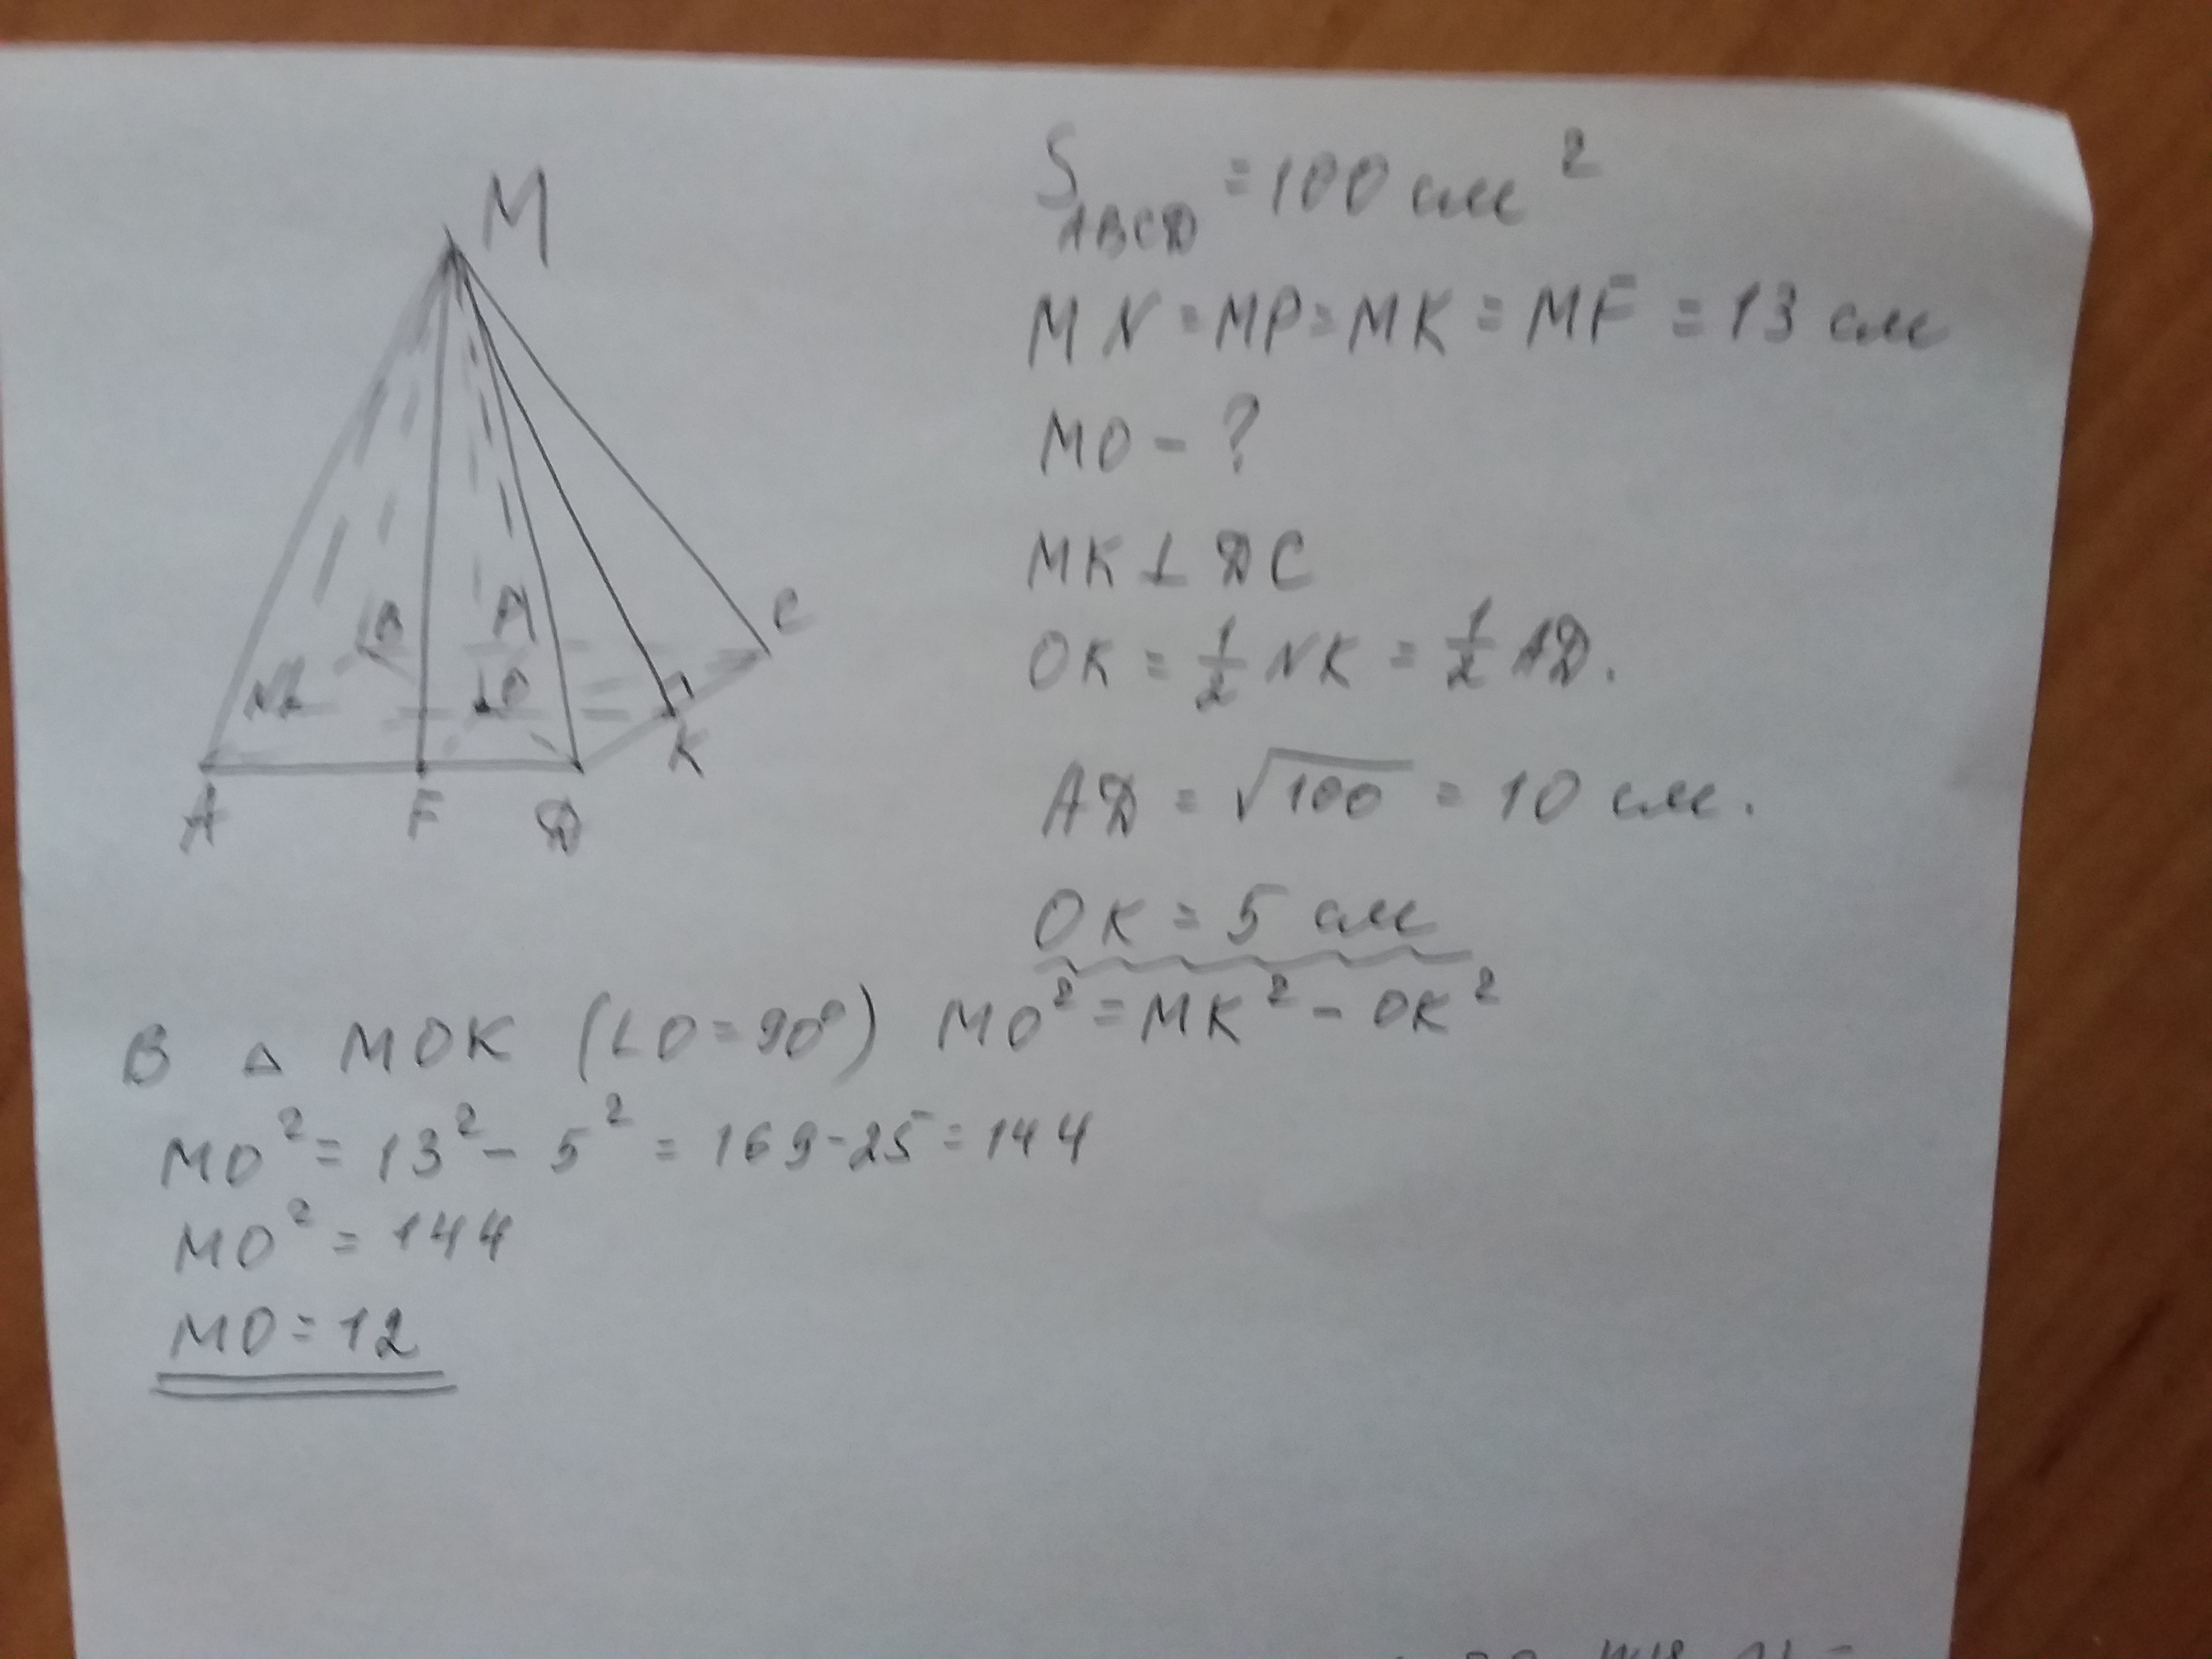 M
B
P
C
N
O
K
A F D
S ABCD = 100 см²
MN = MP = MK = MF = 13 см
MO - ?
MK ⊥ DC
OK = 1/2 NK = 1/2 AD.
AD = √100 = 10 см.
OK = 5 см
В △ MOK (∠O = 90°) MO² = MK² - OK²
MO² = 13² - 5² = 169 - 25 = 144
MO² = 144
MO = 12